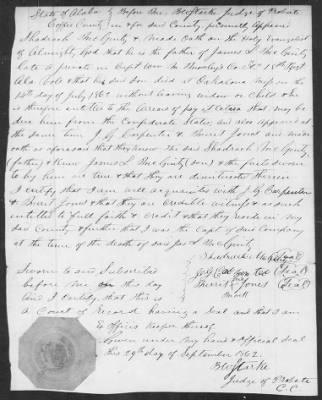 State of Alaba } Before Me B W Starke Judge of Probate
Coffee County } in & for said County, personly Appears
Shadrach McGinty & Made Oath on the Holy Evangelist
of Almighty God that he is the father of James L McGinty
Late a private in Capt Wm M Co 1st Regt
Ala Vols & that his said Son died at Oakalona Miss on the
15th day of July 1862 without leaving widow or Child & he
is therefore entitled to the Arears of pay & that may be
due him from the Confederate States and Also Appeared at
the same time J. G. Carpenter & Burrit Jones and made
oath as aforesaid that they know the said Shadrach McGinty
(father) & knew James L McGinty (son) & the facts sworn
to by him are true & that they are disinterested therein
I certify that I am well acquainted with J. G. Carpenter
& Burrit Jones & that they are Credible witnesses & as such
entitled to full faith & Credit & that they reside in my
said County & further that I was the Capt of said Company
at the time of the death of said Jas L McGinty
Shadrach McGinty (Seal)
Sworn to and Subscribed J. G. Carpenter (Seal)
before me on this day Burrit Jones (Seal)
And I certify that this is mark
a Court of Record having a Seal and that I am
its officer & keeper thereof
Given under my hand & official Seal
this 29th day of September 1862.
B W Starke
Judge of Probate
C. C.